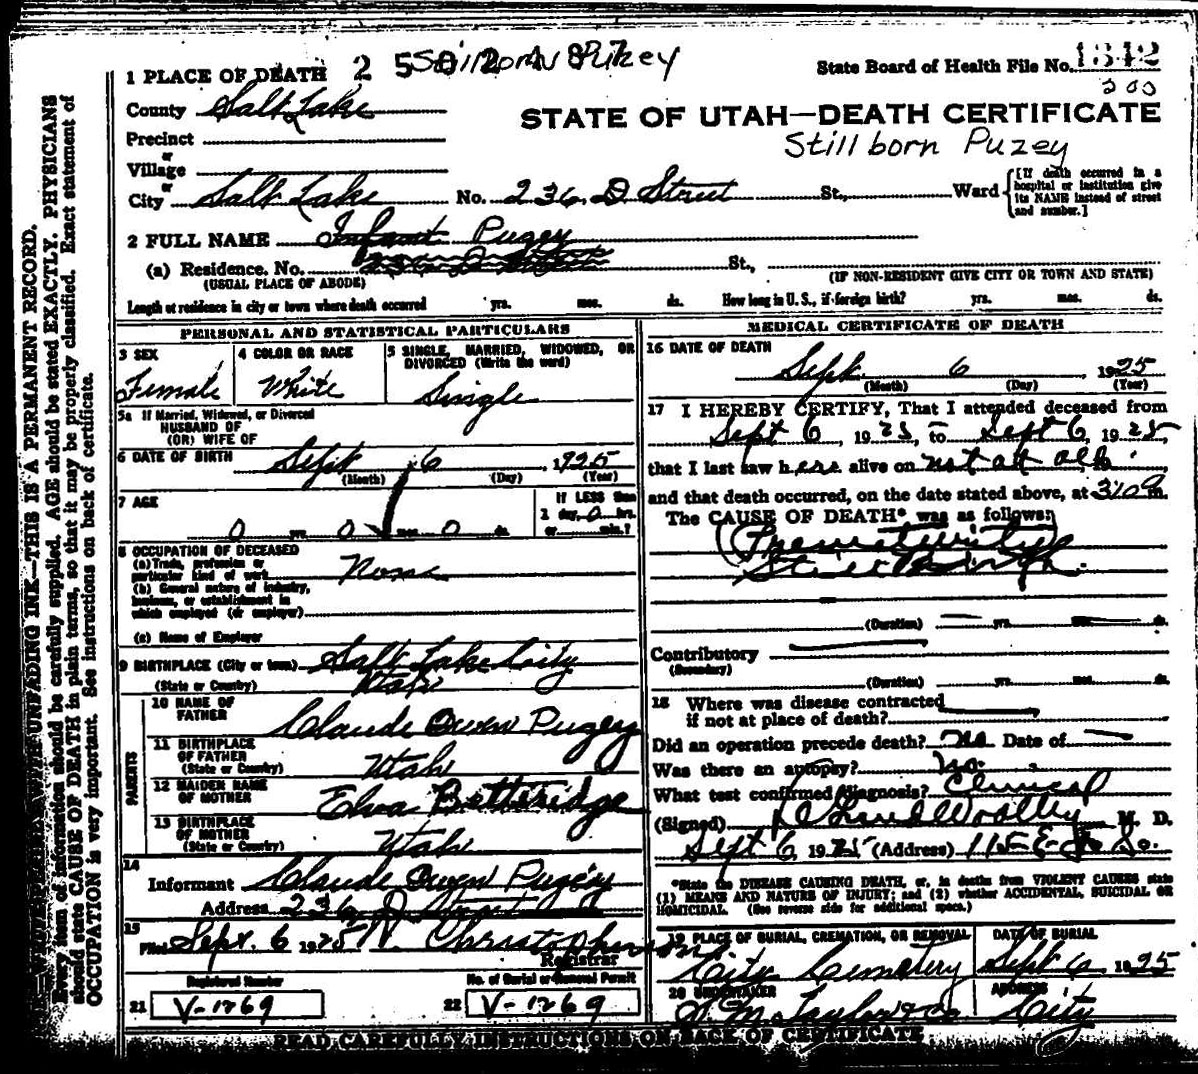 1 PLACE OF DEATH 2 5 0 2 4 8 7 Stillborn Puzey State Board of Health File No. 1342
200
County Salt Lake
STATE OF UTAH—DEATH CERTIFICATE
Precinct
Stillborn Puzey
or
Village
or
City Salt Lake No. 236 D Street St., Ward [If death occurred in a hospital or institution give its NAME instead of street and number.]
2 FULL NAME Infant Puzey
(a) Residence. No. 236 D Street St.,
(USUAL PLACE OF ABODE) (IF NON-RESIDENT GIVE CITY OR TOWN AND STATE)
Length of residence in city or town where death occurred yrs. mos. ds. How long in U. S., if foreign birth? yrs. mos. ds.
PERSONAL AND STATISTICAL PARTICULARS
3 SEX
Female
4 COLOR OR RACE
White
5 SINGLE, MARRIED, WIDOWED, OR DIVORCED (Write the word)
Single
5a If Married, Widowed, or Divorced
HUSBAND OF
(OR) WIFE OF
6 DATE OF BIRTH Sept 6 1925
(Month) (Day) (Year)
7 AGE
0 yrs. 0 mos. 0 ds.
If LESS than
1 day, 0 hrs.
or min.?
8 OCCUPATION OF DECEASED
(a) Trade, profession or
particular kind of work None
(b) General nature of industry,
business, or establishment in
which employed (or employer)
(c) Name of Employer
9 BIRTHPLACE (City or town) Salt Lake City
(State or Country) Utah
PARENTS
10 NAME OF
FATHER Claude Owen Puzey
11 BIRTHPLACE
OF FATHER
(State or Country) Utah
12 MAIDEN NAME
OF MOTHER Elva Betteridge
13 BIRTHPLACE
OF MOTHER
(State or Country) Utah
14
Informant Claude Owen Puzey
Address 236 D Street
15
Filed Sept. 6 1925
Registrar
Registered Number
21 V-1269
No. of Burial or Removal Permit
22 V-1269
MEDICAL CERTIFICATE OF DEATH
16 DATE OF DEATH
Sept 6 1925
(Month) (Day) (Year)
17 I HEREBY CERTIFY, That I attended deceased from
Sept 6, 1925, to Sept 6, 1925,
that I last saw h alive on not at all
and that death occurred, on the date stated above, at m.
The CAUSE OF DEATH* was as follows:
Prematurity
Still Birth
(Duration) yrs. mos. ds.
Contributory
(Secondary)
(Duration) yrs. mos. ds.
18 Where was disease contracted
if not at place of death?
Did an operation precede death? No Date of
Was there an autopsy? no.
What test confirmed diagnosis? Clinical
(Signed) M. D.
Sept 6, 1925 (Address) 115 E So.
*State the DISEASE CAUSING DEATH, or, in deaths from VIOLENT CAUSES state
(1) MEANS AND NATURE OF INJURY; and (2) whether ACCIDENTAL, SUICIDAL OR
HOMICIDAL. (See reverse side for additional space.)
19 PLACE OF BURIAL, CREMATION, OR REMOVAL
City Cemetery
DATE OF BURIAL
Sept 6 1925
20 UNDERTAKER
ADDRESS
City
READ CAREFULLY INSTRUCTIONS ON BACK OF CERTIFICATE
THIS IS A PERMANENT RECORD.
Every item of information should be carefully supplied. AGE should be stated EXACTLY. PHYSICIANS
should state CAUSE OF DEATH in plain terms, so that it may be properly classified. Exact statement of
OCCUPATION is very important. See instructions on back of certificate.